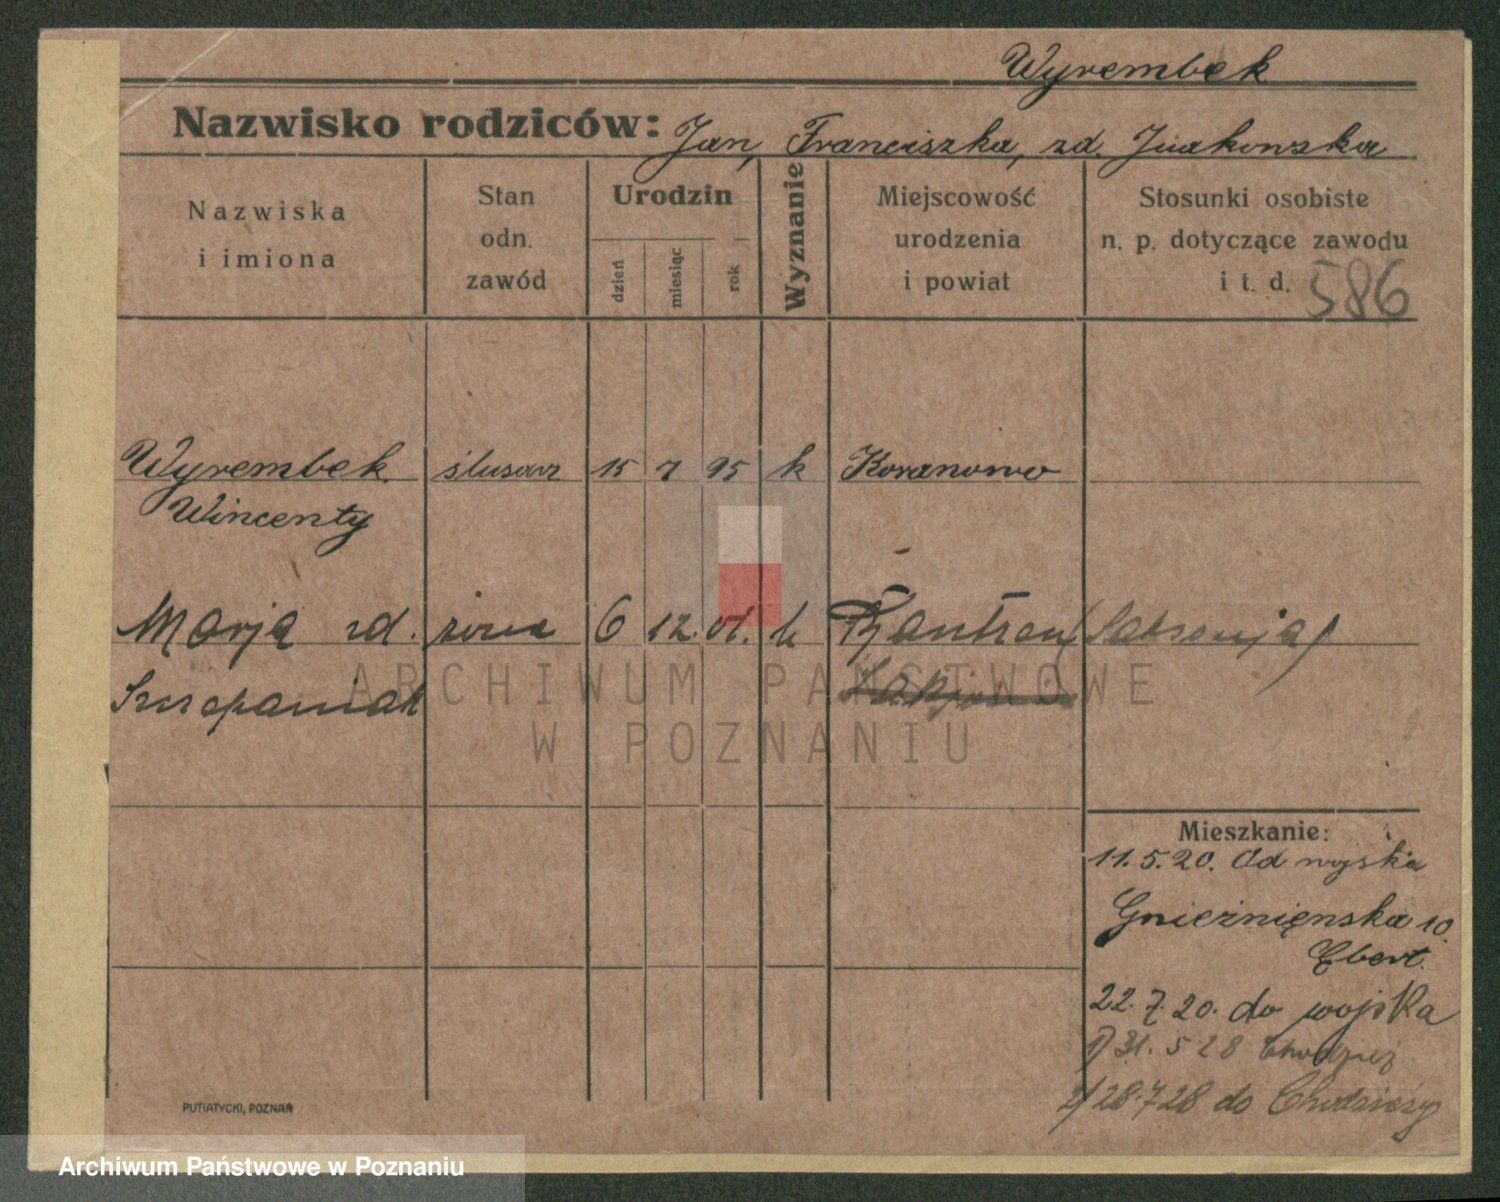 Wyrembek
Nazwisko rodziców: Jan, Franciszka, zd.
Nazwiska
i imiona
Stan
odn.
zawód
Urodzin
dzień
miesiąc
rok
Wyznanie
Miejscowość
urodzenia
i powiat
Stosunki osobiste
n. p. dotyczące zawodu
i t. d. 586
Wyrembek ślusarz 15 7 95 k
Wincenty
Marja zd. żona 6 12. 01. k (Saksonja)
Szczepaniak
ARCHIWUM PAŃSTWOWE
W POZNANIU
Mieszkanie:
11.5.20. Od wojska
Gnieźnieńska 10.
Ebert.
22.7.20. do wojska
1) 31.5 28 Chodzież
2) 28.7 28 do Chodzieży
PUTIATYCKI, POZNAŃ
Archiwum Państwowe w Poznaniu